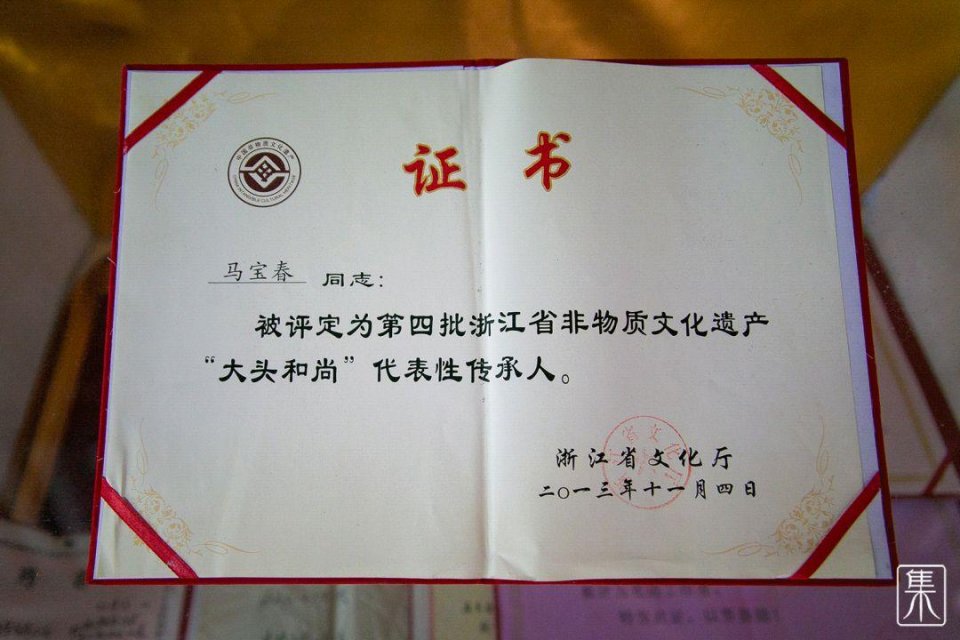 中国非物质文化遗产
CHINA INTANGIBLE CULTURAL HERITAGE
证书
马宝春 同志：
被评定为第四批浙江省非物质文化遗产
“大头和尚”代表性传承人。
浙江省文化厅
二〇一三年十一月四日
集